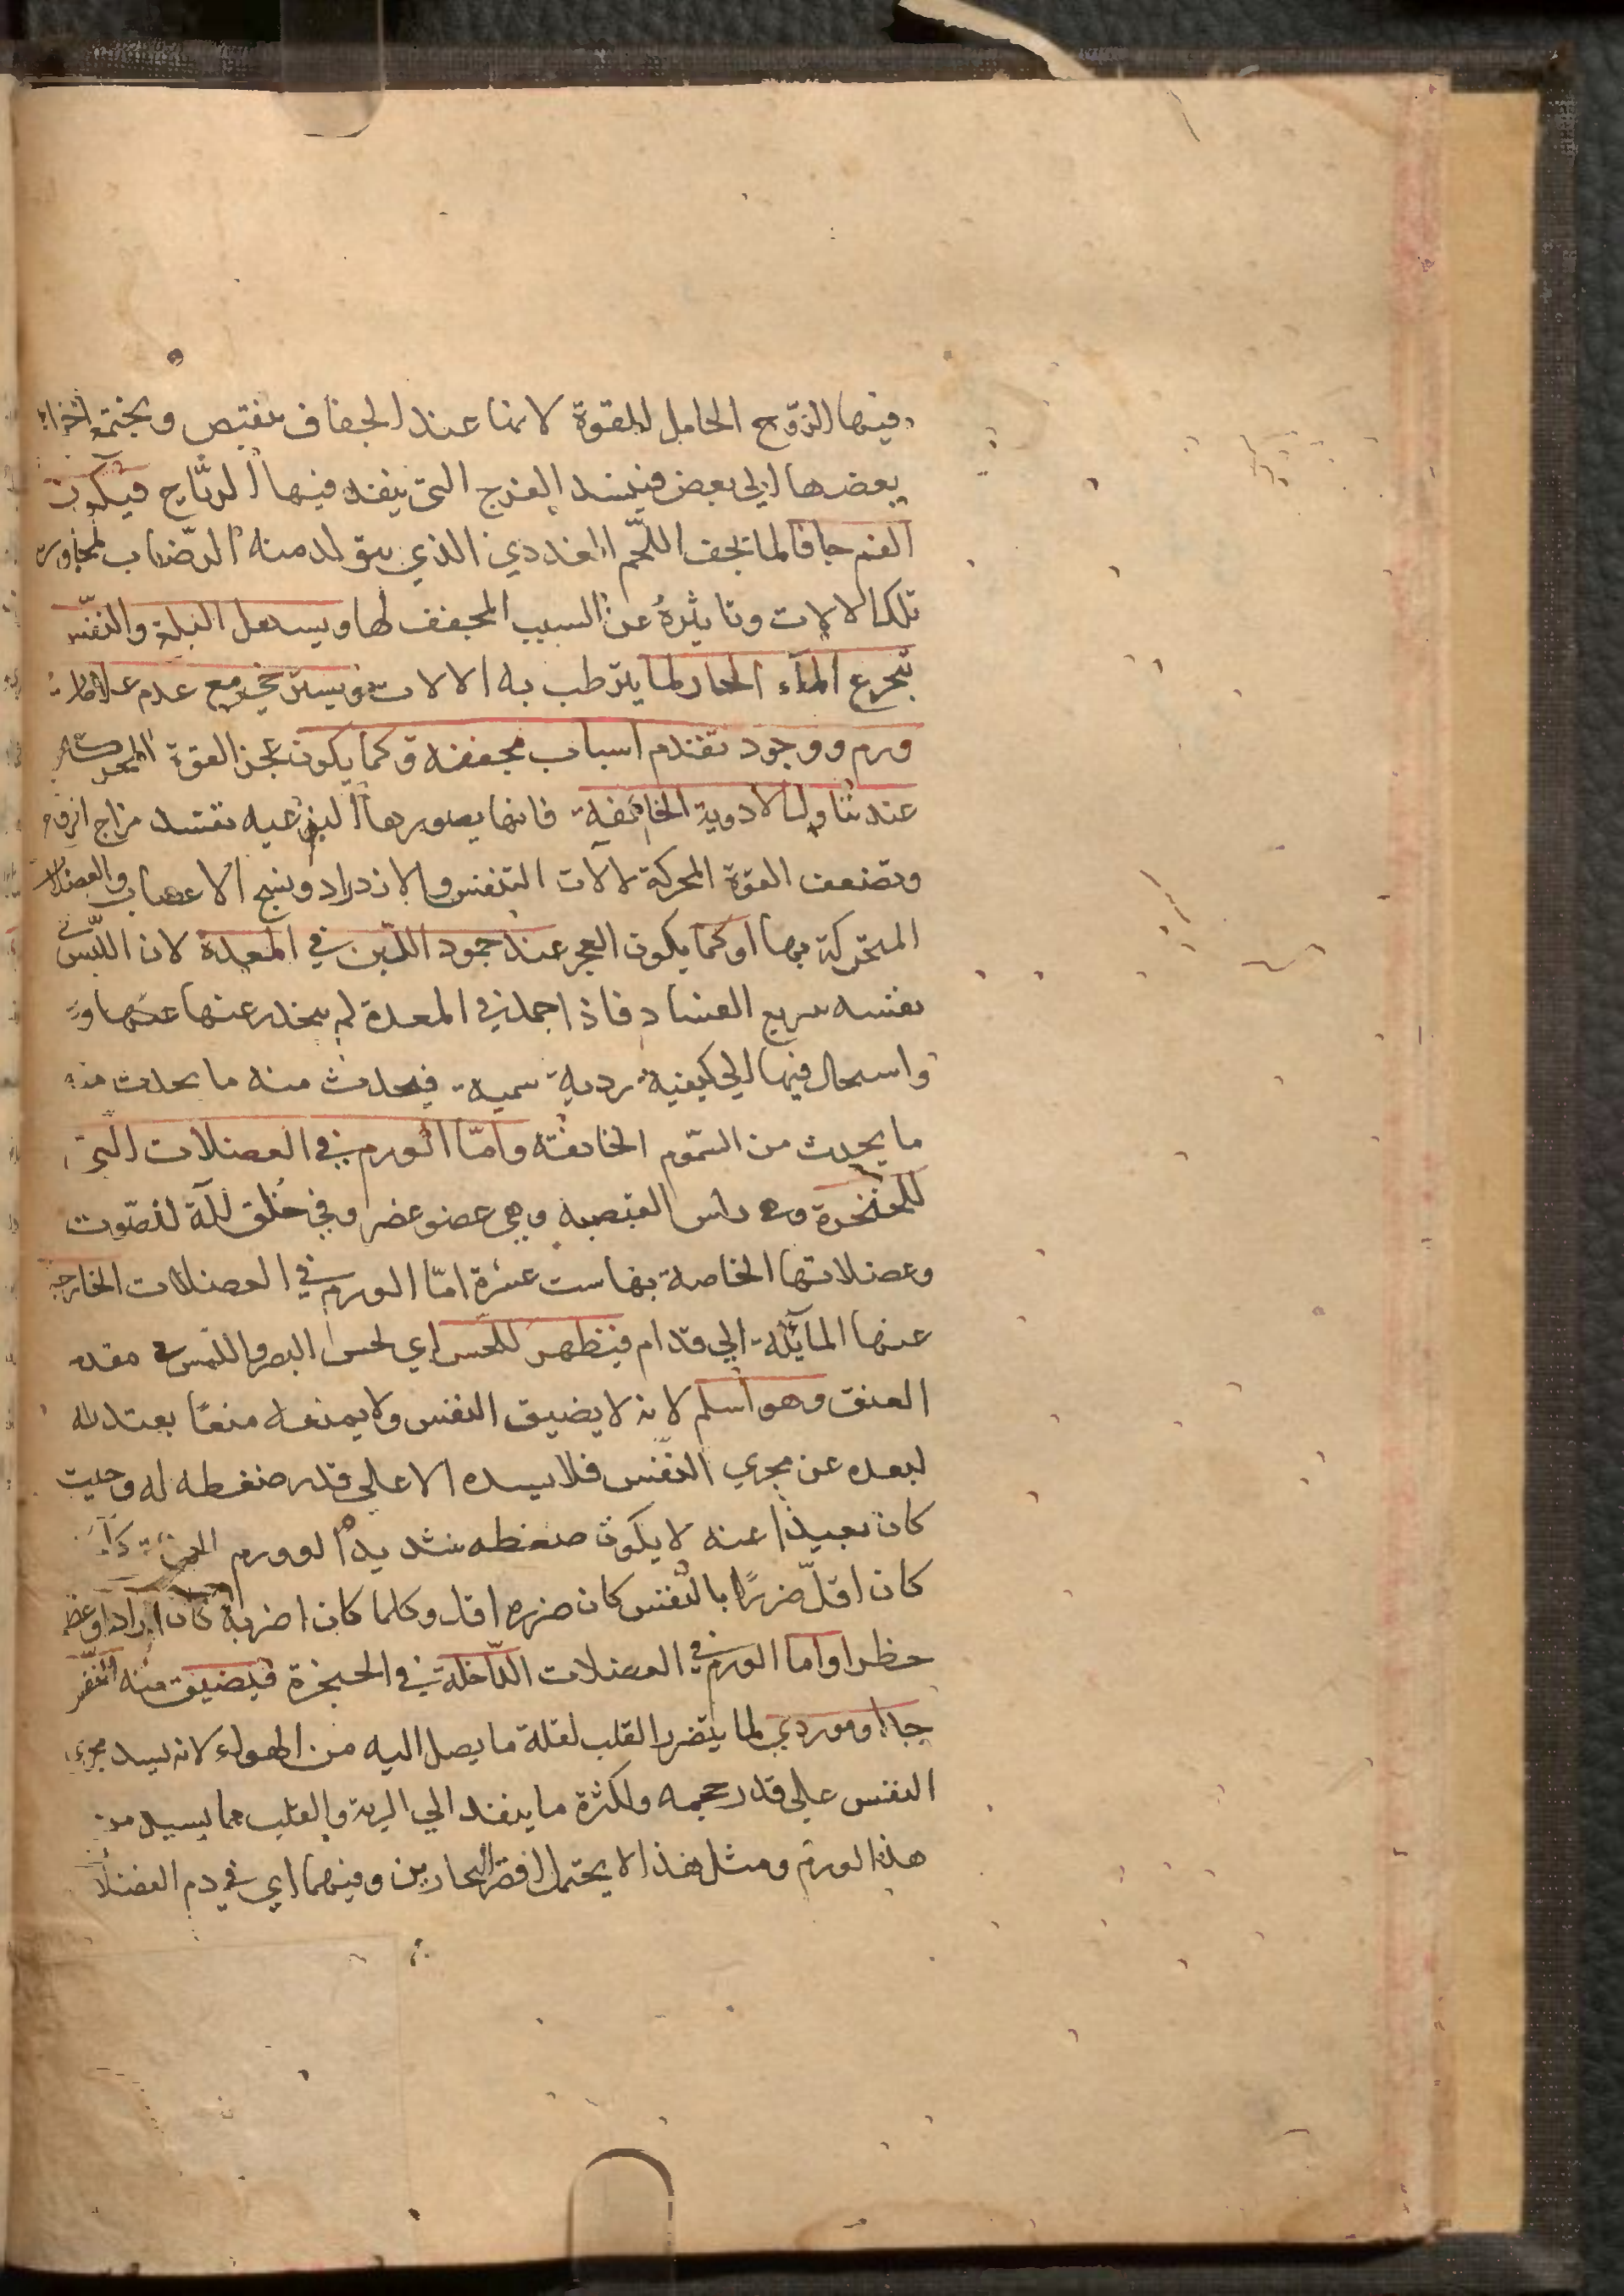 فيها الروح الحامل للقوة لانها عند الجفاف تنقبص ويجتمع اجزاء
بعضها الي بعض فينسد الفرج التي ينفد فيها الرياح فيكون
الفم جافا لما يجف اللحم الغددي الذي يتولد منه الرضاب لمجاورة
تلك الالات وتاثيره عن السبب المجفف لها ويسهل البلع والنفس
تجرع الماء الحار لما يترطب به الالات ويسترخي مع عدم علامات
ورم ووجود تقدم اسباب مجففه وكما يكون عجز القوة المحركة
عند تناول الادوية الخانقة فانها بصورها النوعيه تفسد مزاج الروح
وتضعف القوة المحركة لالات التنفس والازدراد ونسج الاعصاب والعضلات
المتحركة بها او كما يكون العجز عند جمود اللبن في المعدة لان اللبن في
نفسه سريع الفساد فاذا جمد في المعدة لم ينحدر عنها
واسحال فيها الي كيفية ردية سمية فيحدث منه ما يحدث منه
ما يحدث من السموم الخانقة واما الورم في العضلات التي
للحنجرة وهي راس القصبه وهي عضو غضروفي خلق للة للصوت
وعضلاتها الخاصة بها ست عشرة اما الورم في العضلات الخارجة
عنها المائلة الي قدام فيظهر للحس اي لحس البصر واللمس في مقدم
العنق وهو اسلم لانه لا يضيق النفس ولا يمنعه منعا يعتد به
لبعده عن مجري النفس فلا يسده الا علي قدر ضغطه له وحيث
كان بعيدا عنه لا يكون ضغطه شديدا لو ورم
كان اقل ضررا بالنفس كان ضرره اقل وكلما كان اضر به كان
خطرا واما الورم في العضلات الداخلة في الحنجرة فيضيق منه النفس
جدا وهو ردي لما يتضرر القلب لقلة ما يصل اليه من الهواء لانه يسد مجري
النفس علي قدر حجمه ولكثرة ما ينفد الي الرية والقلب مما يسيل من
هذا الورم ومثل هذا لا يحتمل اقصر البحارين وفيهما اي في دم العضلا